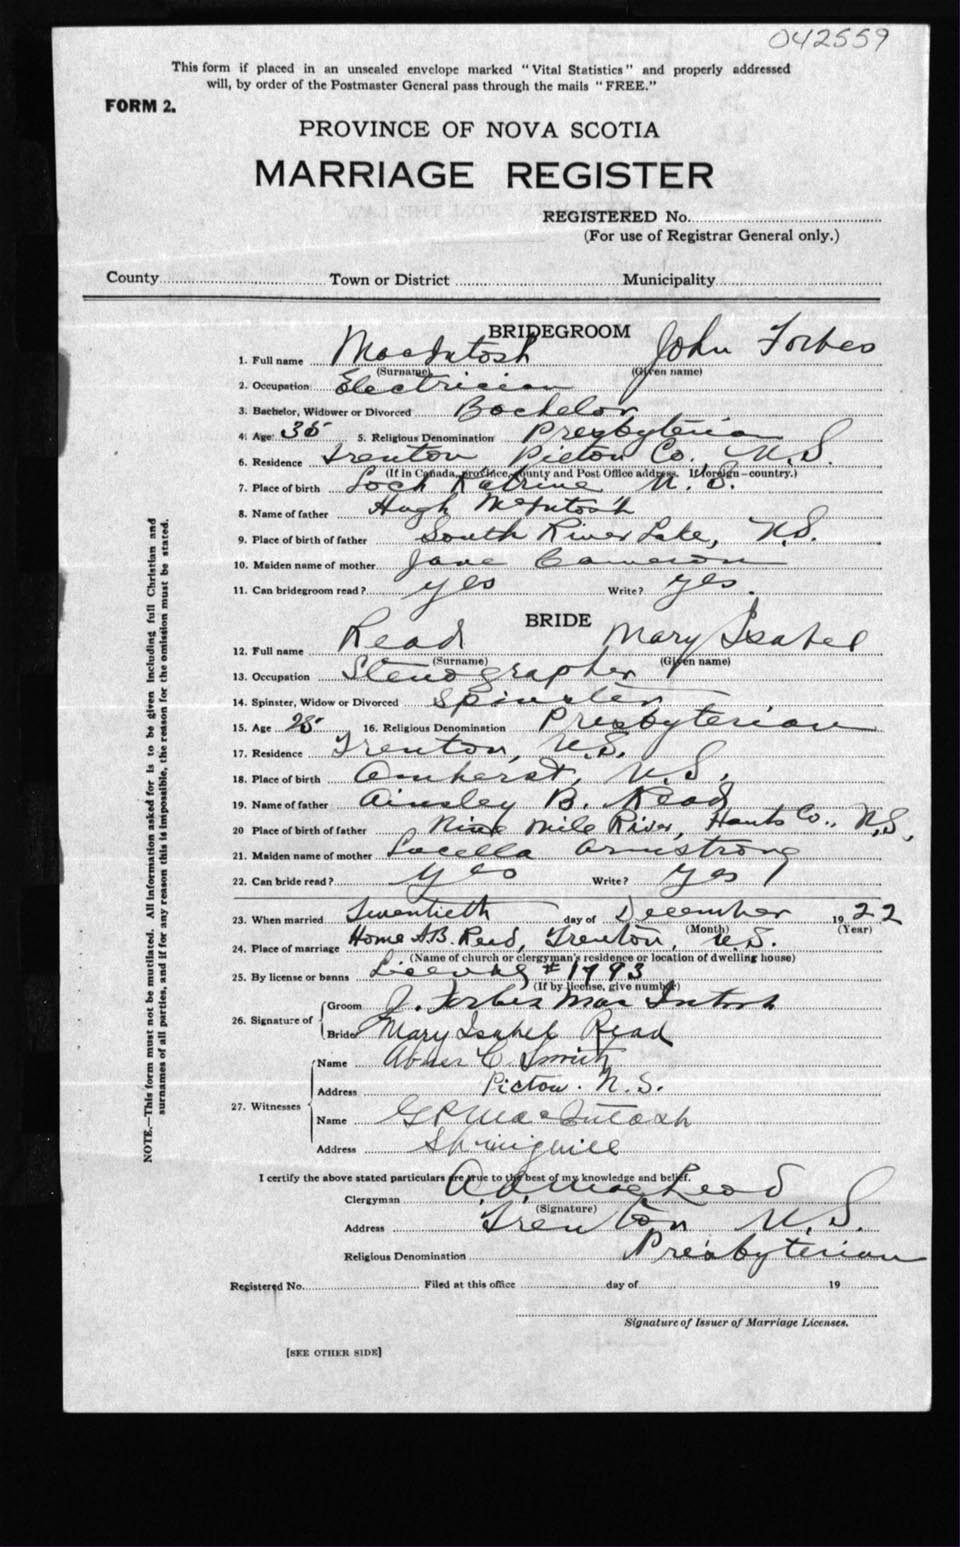 042559
This form if placed in an unsealed envelope marked "Vital Statistics" and properly addressed
will, by order of the Postmaster General pass through the mails "FREE."
FORM 2.
PROVINCE OF NOVA SCOTIA
MARRIAGE REGISTER
REGISTERED No.
(For use of Registrar General only.)
County Town or District Municipality
BRIDEGROOM
1. Full name MacIntosh John Forbes
(Surname) (Given name)
2. Occupation Electrician
3. Bachelor, Widower or Divorced Bachelor
4. Age 35 5. Religious Denomination Presbyterian
6. Residence Trenton Pictou Co. N.S.
(If in Canada, province, county and Post Office address. If foreign—country.)
7. Place of birth Loch Katrine N.S.
8. Name of father Hugh McIntosh
9. Place of birth of father South River Lake, N.S.
10. Maiden name of mother Jane Cameron
11. Can bridegroom read? yes Write? yes.
BRIDE
12. Full name Read Mary Isabel
(Surname) (Given name)
13. Occupation Stenographer
14. Spinster, Widow or Divorced Spinster
15. Age 25 16. Religious Denomination Presbyterian
17. Residence Trenton, N.S.
18. Place of birth Amherst, N.S.
19. Name of father Ainsley B. Read
20 Place of birth of father Nine Mile River, Hants Co., N.S.
21. Maiden name of mother Locella Armstrong
22. Can bride read? yes Write? yes
23. When married Twentieth day of December 1922
(Month) (Year)
24. Place of marriage Home A.B. Read, Trenton, N.S.
(Name of church or clergyman's residence or location of dwelling house)
25. By license or banns License #1793
(If by license, give number)
26. Signature of Groom J. Forbes MacIntosh
Bride Mary Isabel Read
27. Witnesses Name C. Smith
Address Pictou. N.S.
Name G P MacIntosh
Address Springhill
I certify the above stated particulars are true to the best of my knowledge and belief.
Clergyman A.D. MacLeod
(Signature)
Address Trenton N.S.
Religious Denomination Presbyterian
Registered No. Filed at this office day of 19
Signature of Issuer of Marriage Licenses.
[SEE OTHER SIDE]
NOTE.—This form must not be mutilated. All information asked for is to be given including full Christian and
surnames of all parties, and if for any reason this is impossible, the reason for the omission must be stated.